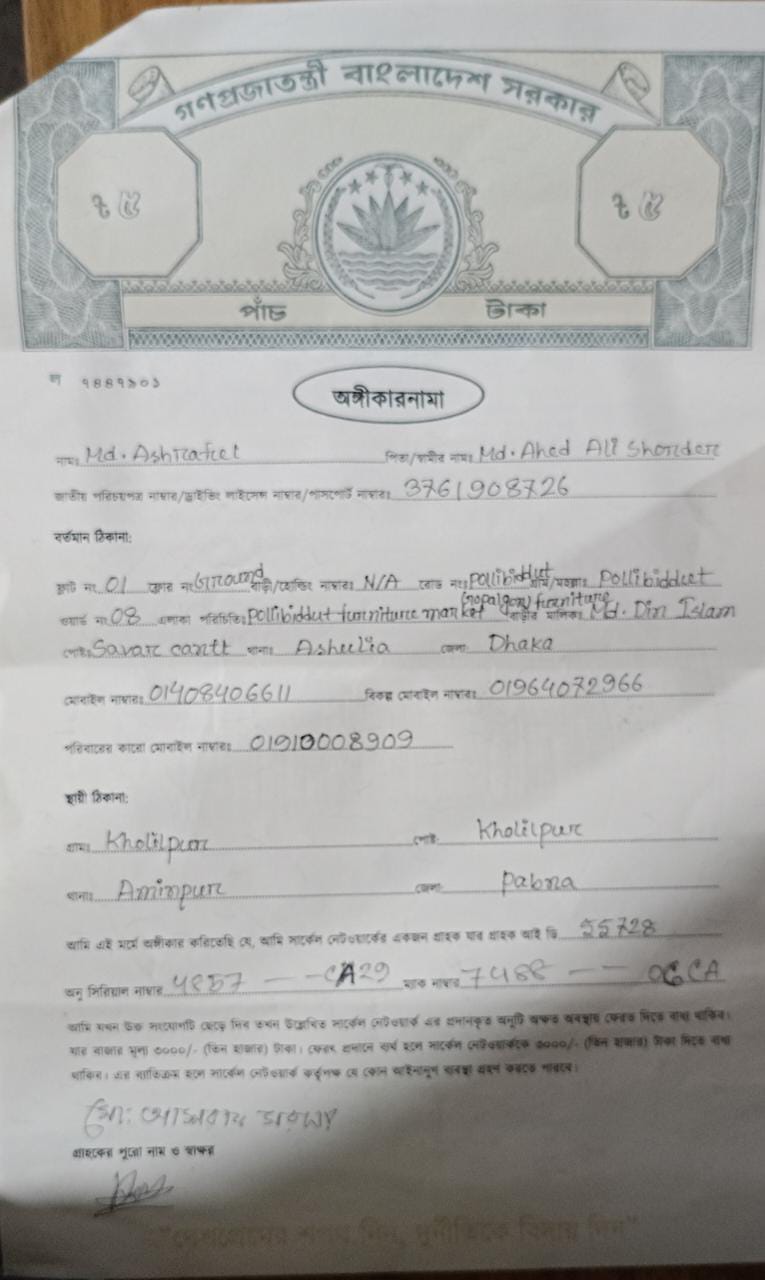 গণপ্রজাতন্ত্রী বাংলাদেশ সরকার
৳ ৫ ৳ ৫
পাঁচ টাকা
৭৪৪৭৯০১
অঙ্গীকারনামা
নামঃ Md. Ashraful পিতা/স্বামীর নামঃ Md. Ahed Ali Shorder
জাতীয় পরিচয়পত্র নাম্বার/ড্রাইভিং লাইসেন্স নাম্বার/পাসপোর্ট নাম্বারঃ 3761908726
বর্তমান ঠিকানা:
ফ্লাট নং 01 ফ্লোর নং Ground বাড়ী/হোল্ডিং নাম্বারঃ N/A রোড নং Pollibiddut গ্রাম/মহল্লাঃ Pollibiddut
ওয়ার্ড নং 08 এলাকা পরিচিতিঃ Pollibiddut furniture market Gopalgonj furniture বাড়ীর মালিকঃ Md. Din Islam
পোষ্টঃ Savar cantt থানাঃ Ashulia জেলাঃ Dhaka
মোবাইল নাম্বারঃ 01408406611 বিকল্প মোবাইল নাম্বারঃ 01964072966
পরিবারের কারো মোবাইল নাম্বারঃ 01910008909
স্থায়ী ঠিকানা:
গ্রামঃ Kholilpur পোষ্ট: Kholilpur
থানাঃ Aminpur জেলা: Pabna
আমি এই মর্মে অঙ্গীকার করিতেছি যে, আমি সার্কেল নেটওয়ার্কের একজন গ্রাহক যার গ্রাহক আই ডি 55728
অনু সিরিয়াল নাম্বার 4857 -- CA29 ম্যাক নাম্বার 7488 -- 0GCA
আমি যখন উক্ত সংযোগটি ছেড়ে দিব তখন উল্লেখিত সার্কেল নেটওয়ার্ক এর প্রদানকৃত অনুটি অক্ষত অবস্থায় ফেরত দিতে বাধ্য থাকিব।
যার বাজার মূল্য ৩০০০/- (তিন হাজার) টাকা। ফেরৎ প্রদানে ব্যর্থ হলে সার্কেল নেটওয়ার্ককে ৩০০০/- (তিন হাজার) টাকা দিতে বাধ্য
থাকিব। এর ব্যতিক্রম হলে সার্কেল নেটওয়ার্ক কর্তৃপক্ষ যে কোন আইনানুগ ব্যবস্থা গ্রহণ করতে পারবে।
মো:
গ্রাহকের পুরো নাম ও স্বাক্ষর
"দেশপ্রেমের শপথ নিন, দুর্নীতিকে বিদায় দিন"